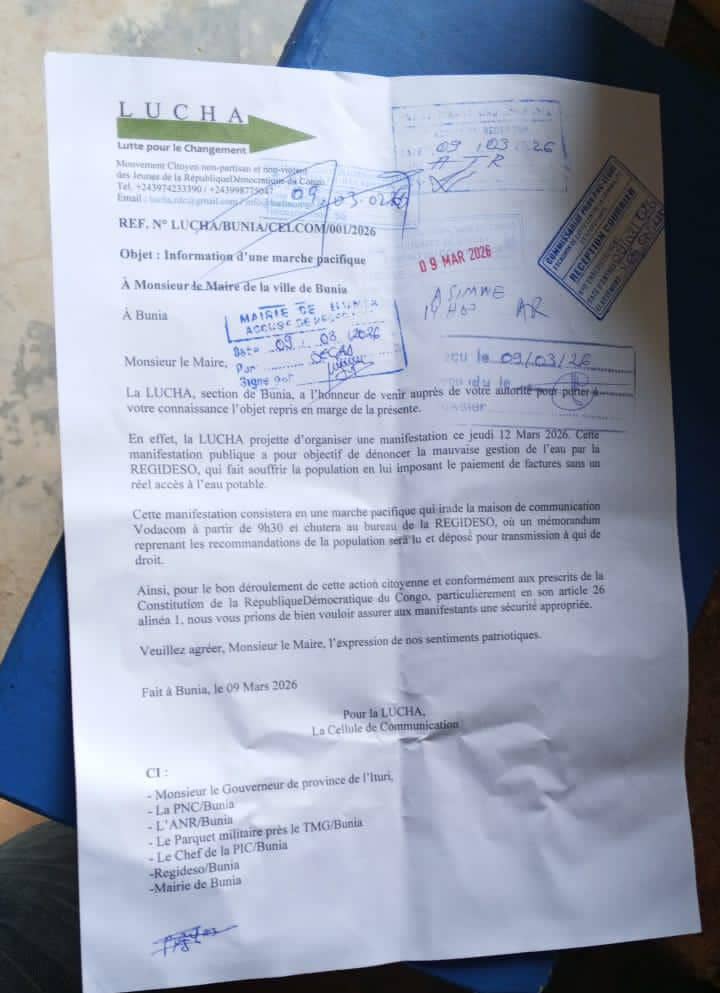 LUCHA
Lutte pour le Changement
Mouvement Citoyen non-partisan et non-violent
des Jeunes de la RépubliqueDémocratique du Congo
Tel. +243974233390 / +243998775047
Email : lucha.rdc@gmail.com /
09.03.026
RECEPTION
09.03.26
ATR
REF. N° LUCHA/BUNIA/CELCOM/001/2026
COMMISSARIAT PROVINCIAL
RECEPTION COURRIER
Objet : Information d'une marche pacifique
09 MAR 2026
À Monsieur le Maire de la ville de Bunia
14H00 AR
À Bunia
MAIRIE DE BUNIA
Date 09.03.2026
Par
Signature
Monsieur le Maire,
çu le 09/03/26
La LUCHA, section de Bunia, a l'honneur de venir auprès de votre autorité pour porter à
votre connaissance l'objet repris en marge de la présente.
En effet, la LUCHA projette d'organiser une manifestation ce jeudi 12 Mars 2026. Cette
manifestation publique a pour objectif de dénoncer la mauvaise gestion de l'eau par la
REGIDESO, qui fait souffrir la population en lui imposant le paiement de factures sans un
réel accès à l'eau potable.
Cette manifestation consistera en une marche pacifique qui irade la maison de communication
Vodacom à partir de 9h30 et chutera au bureau de la REGIDESO, où un mémorandum
reprenant les recommandations de la population sera lu et déposé pour transmission à qui de
droit.
Ainsi, pour le bon déroulement de cette action citoyenne et conformément aux prescrits de la
Constitution de la RépubliqueDémocratique du Congo, particulièrement en son article 26
alinéa 1, nous vous prions de bien vouloir assurer aux manifestants une sécurité appropriée.
Veuillez agréer, Monsieur le Maire, l'expression de nos sentiments patriotiques.
Fait à Bunia, le 09 Mars 2026
Pour la LUCHA,
La Cellule de Communication
CI :
- Monsieur le Gouverneur de province de l'Ituri,
- La PNC/Bunia
- L'ANR/Bunia
- Le Parquet militaire près le TMG/Bunia
- Le Chef de la PIC/Bunia
-Regideso/Bunia
-Mairie de Bunia